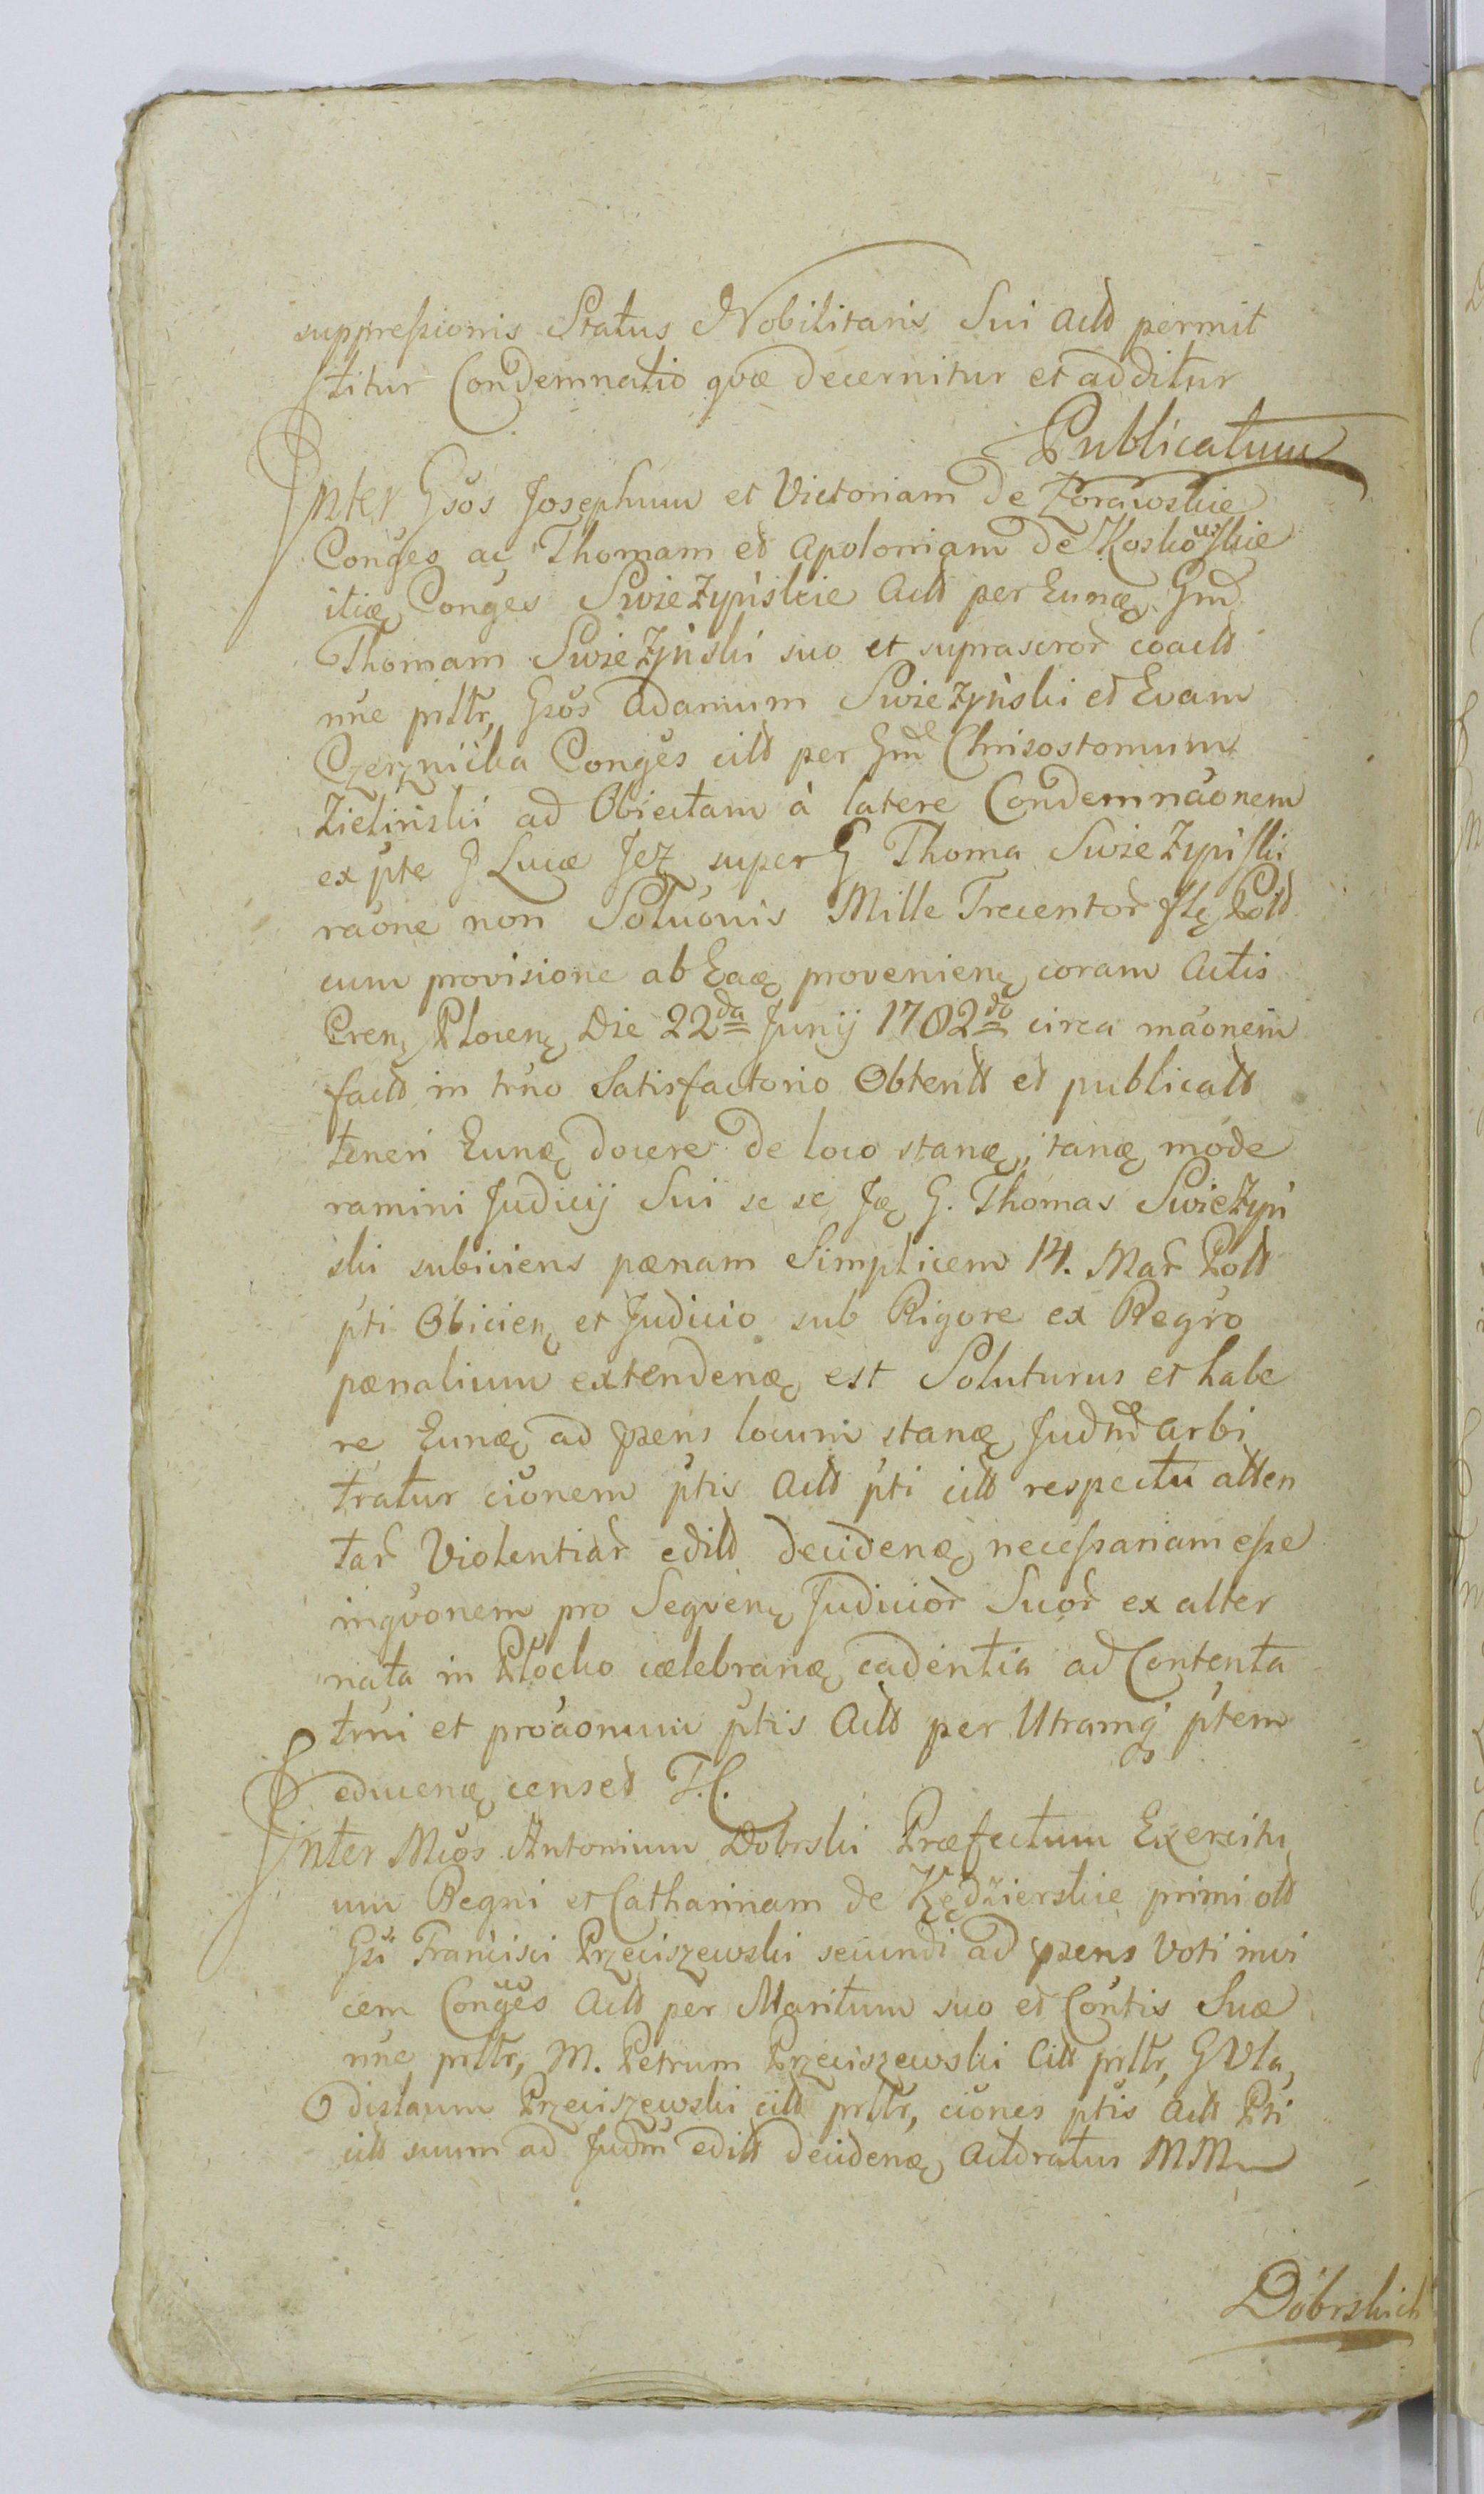 suppressionis Status Nobilitaris Sui Actt permit
titur Condemnatio qvæ decernitur et additur
Publicatum
Inter Gsos Josephum et Victoriam de Zorawskie
Conges ac Thomam et Apoloniam de Koskowskie
itiæ Conges Swiezyńskie Actt per Eunæ Gm
Thomam Swiezyński suo et suprascror coactt
nne prltr, Gsos Adamum Swiezyński et Evam
Czerznicka Conges citt per Gm Chrisostomum
Zielinski ad Obiectam à latere Condemnaonem
ex pte G Lucæ Jez super G Thoma Swiezyński
raone non Soluonis Mille Trecentor flę Poll
cum provisione ab Eaæ provenienę coram Actis
Crenę Plocenę Die 22da Junij 1782do circa maonem
factt in trno Satisfactorio Obtentt et publicatt
teneri Eunæ docere de loco stanæ, itanæ mode
ramini Judicij Sui se se Jæ G. Thomas Swiezyń
ski subiiciens pænam Simplicem 14. Mar Poll
pti Obicienę et Judicio sub Rigore ex Regro
pænalium extendenæ est Soluturus et habe
re Eunæ ad præns locum stanæ Judm arbi
tratur cionem ptis Actt pti citt respectu atten
tar Violentiar editt decidenæ necessariam esse
inqvonem pro Seqvenę Judicior Suor ex alter
nata in Płocko cælebranæ cadentia ad Contenta
trni et proaonum ptis Actt per Utramq ptem
educenæ censet T.C.
Inter Mcos Antonium Dobrski Præfectum Exercitu
um Regni et Catharinam de Kędzierskie primi ott
Gsi Francisci Przeciszewski secundi ad præns Voti invi
cem Conges Actt per Maritum suo et Contis Suæ
nne prltr, M. Petrum Przeciszewski Citt prltr, G Vla,
dislaum Przeciszewski citt prltr, ciones ptis Actt Pti
citt suum ad Judm editt decidenæ Actoratus MM
Dobrskich